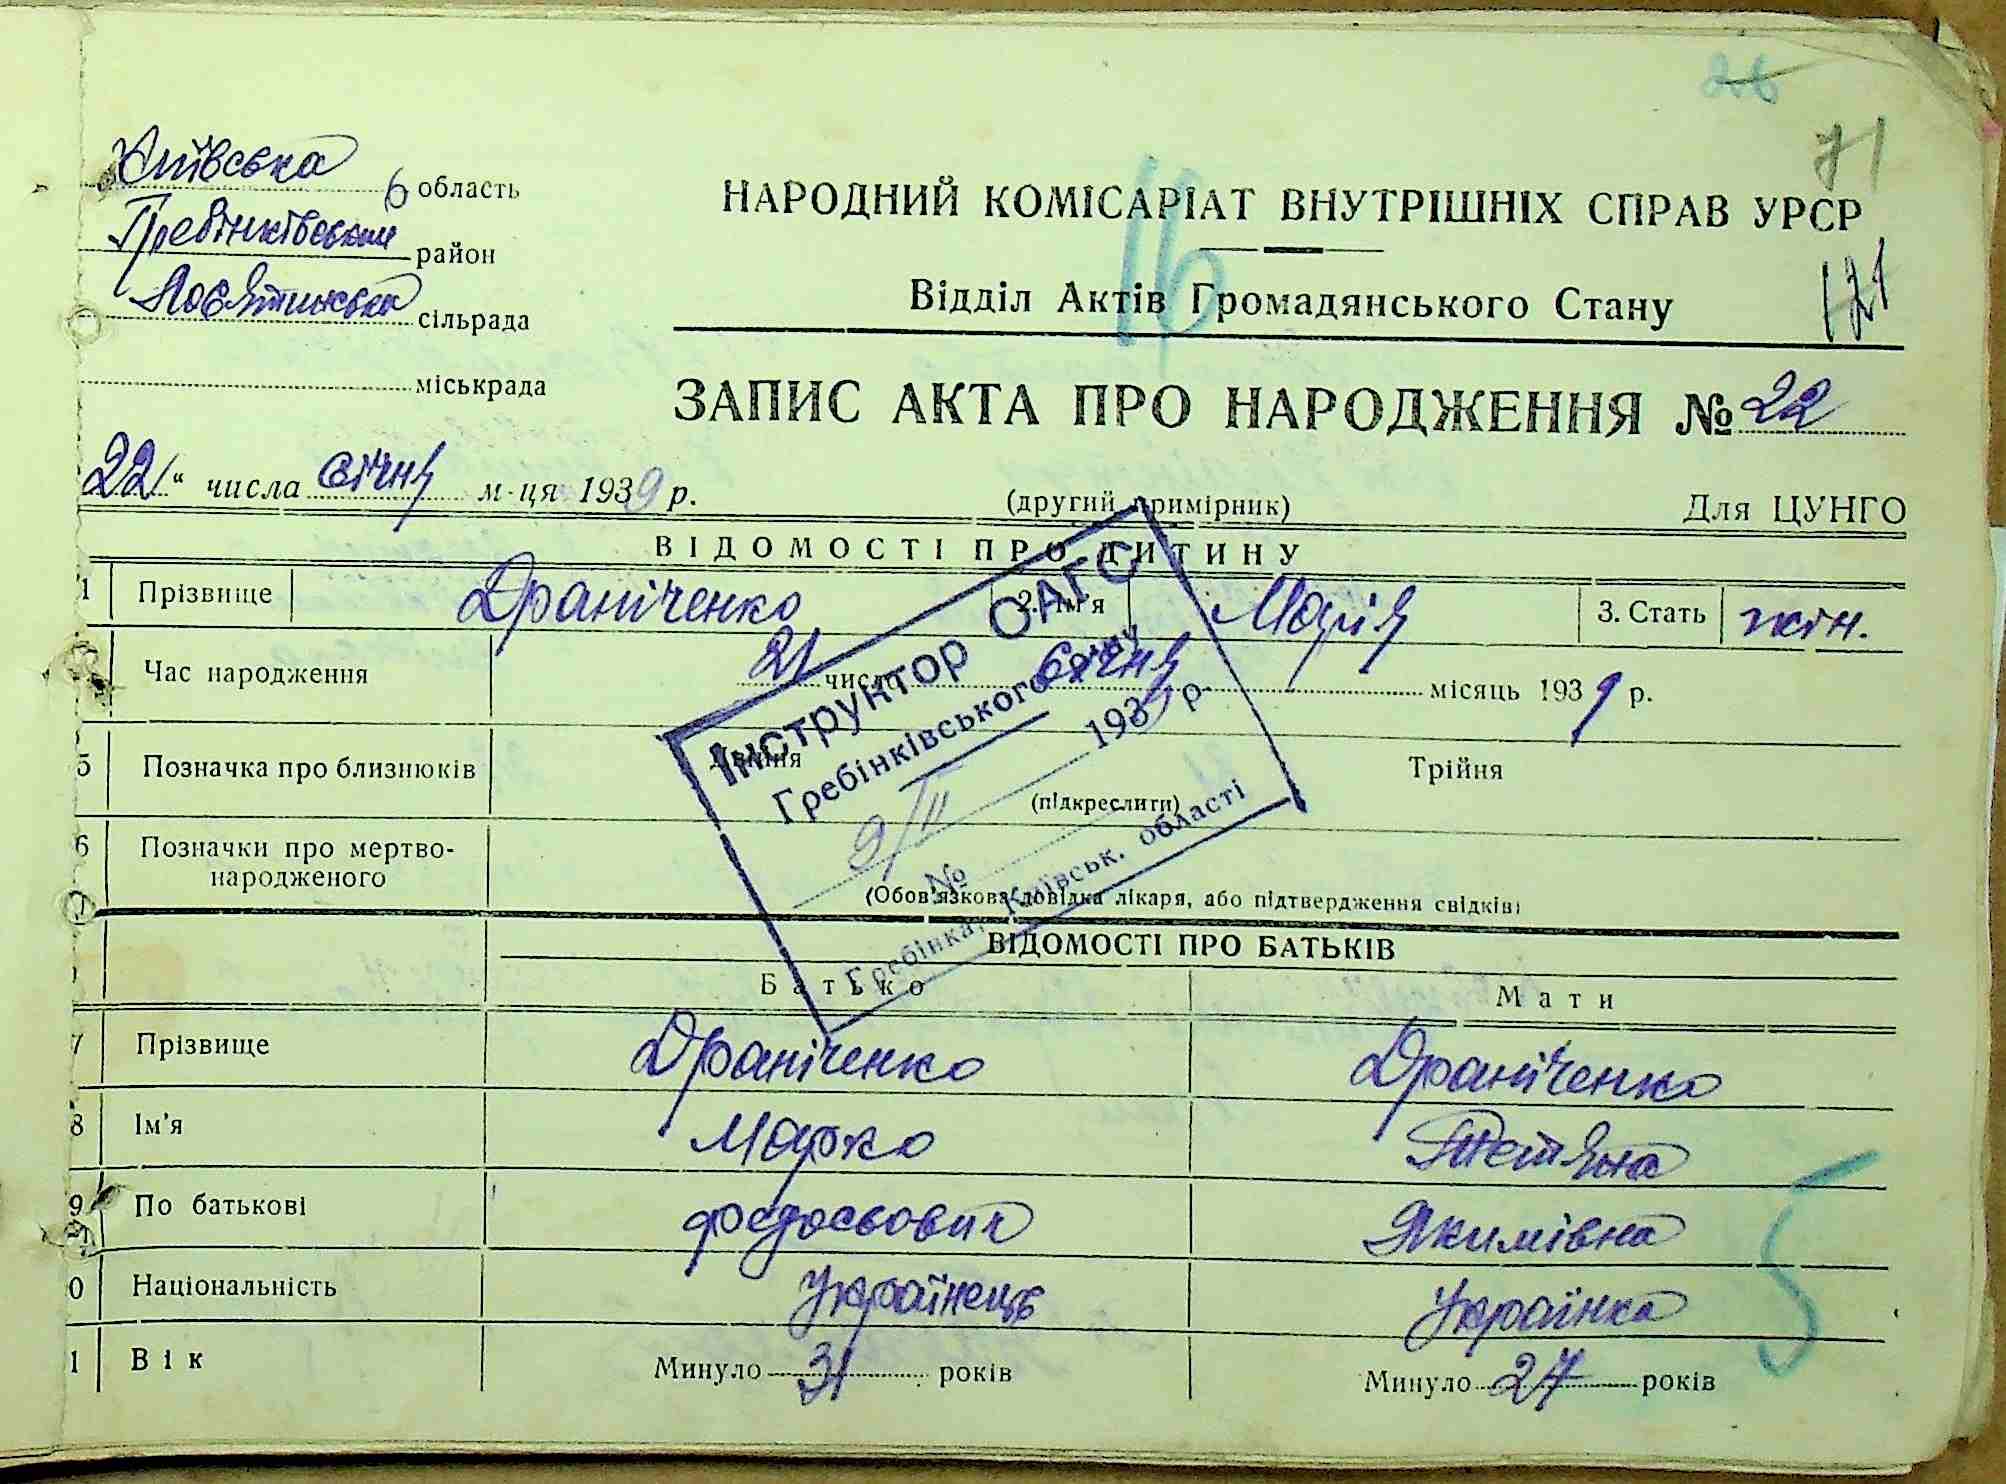 26
71
Київська область
Гребінківський район
Пов'ятинська сільрада
міськрада
НАРОДНИЙ КОМІСАРІАТ ВНУТРІШНІХ СПРАВ УРСР
16
Відділ Актів Громадянського Стану
121
ЗАПИС АКТА ПРО НАРОДЖЕННЯ № 22
22" числа січня м-ця 1939 р.
(другий примірник)
Для ЦУНГО
ВІДОМОСТІ ПРО ДИТИНУ
1 Прізвище Драніченко 2. Ім'я Марія 3. Стать жін.
Час народження 21 числа січня місяць 1939 р.
5 Позначка про близнюків Двійня Трійня
(підкреслити)
6 Позначки про мертво-
народженого
(Обов'язкова довідка лікаря, або підтвердження свідків)
Інструктор ОАГС
Гребінківського
9/II 1939 р.
№
Гребінка, Київськ. області
ВІДОМОСТІ ПРО БАТЬКІВ
Батько Мати
7 Прізвище Драніченко Драніченко
8 Ім'я Марко Тетяна
9 По батькові Федосьович Якимівна
0 Національність Українець Українка
1 Вік Минуло 31 років Минуло 27 років
5